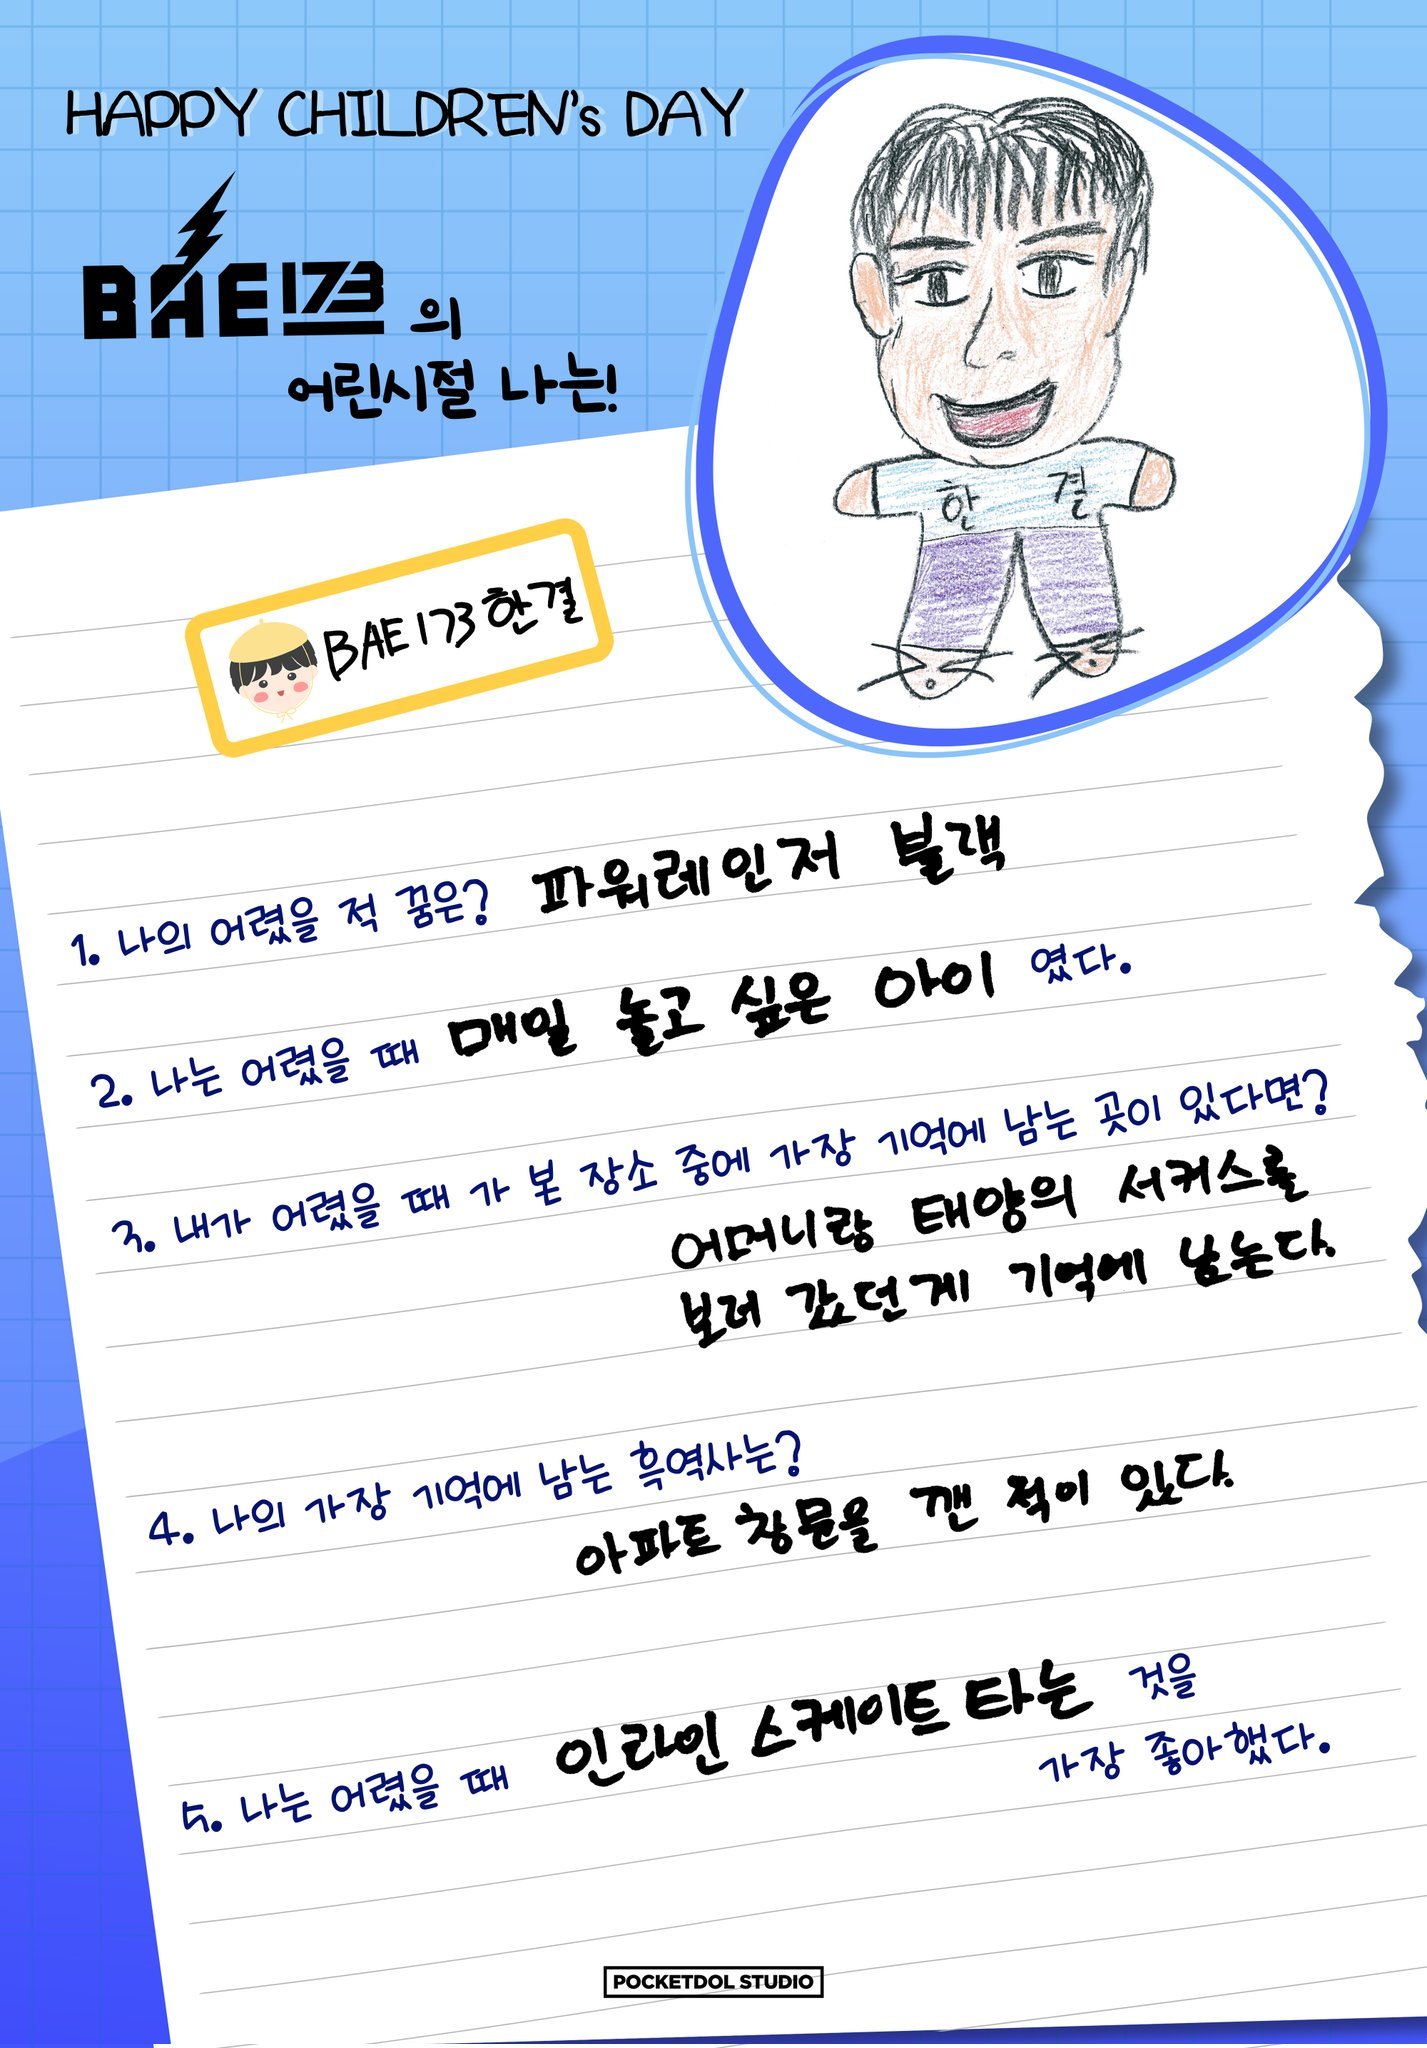 HAPPY CHILDREN's DAY
BAE173 의
어린시절 나는!
한 결
BAE173 한결
1. 나의 어렸을 적 꿈은? 파워레인저 블랙
2. 나는 어렸을 때 매일 놀고 싶은 아이 였다.
3. 내가 어렸을 때 가 본 장소 중에 가장 기억에 남는 곳이 있다면?
어머니랑 태양의 서커스를
보러 갔던게 기억에 남는다.
4. 나의 가장 기억에 남는 흑역사는?
아파트 창문을 깬 적이 있다.
5. 나는 어렸을 때 인라인 스케이트 타는 것을
가장 좋아했다.
POCKETDOL STUDIO